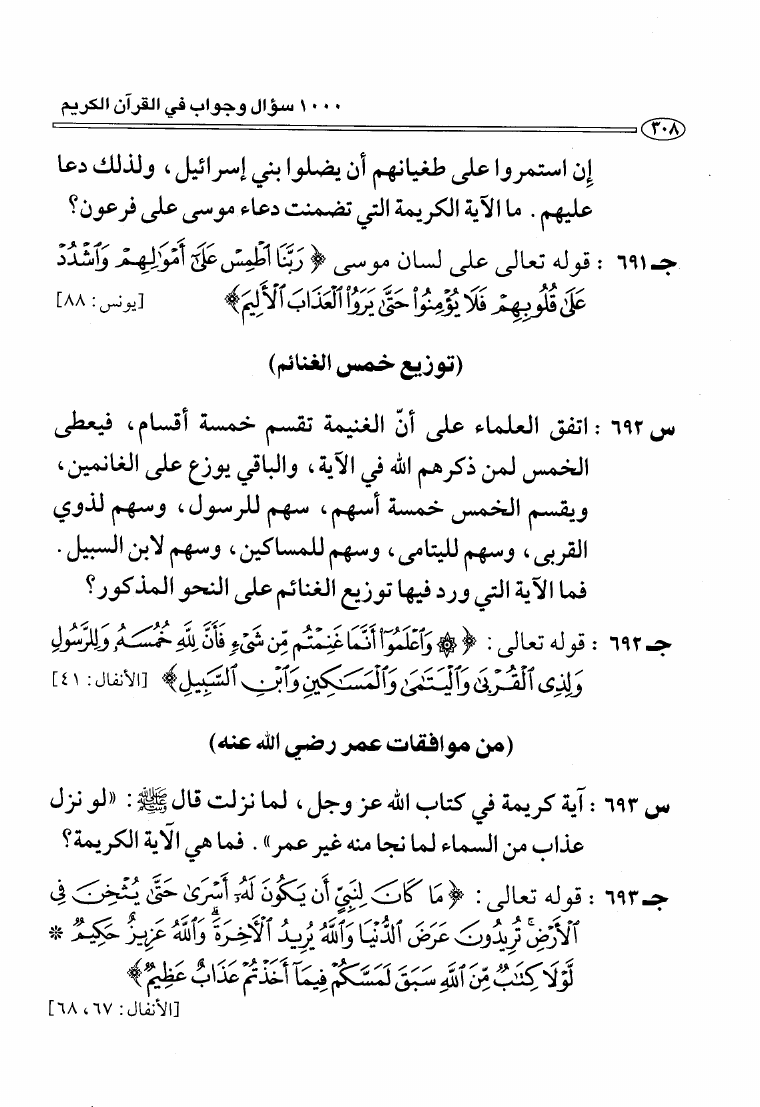 ١٠٠٠ سؤال وجواب في القرآن الكريم
٣٠٨
إن استمروا على طغيانهم أن يضلوا بني إسرائيل، ولذلك دعا
عليهم. ما الآية الكريمة التي تضمنت دعاء موسى على فرعون؟
جـ ٦٩١ : قوله تعالى على لسان موسى ﴿رَبَّنَا ٱطْمِسْ عَلَىٰٓ أَمْوَٰلِهِمْ وَٱشْدُدْ
عَلَىٰ قُلُوبِهِمْ فَلَا يُؤْمِنُوا۟ حَتَّىٰ يَرَوُا۟ ٱلْعَذَابَ ٱلْأَلِيمَ﴾ [يونس: ٨٨]
(توزيع خمس الغنائم)
س ٦٩٢ : اتفق العلماء على أنّ الغنيمة تقسم خمسة أقسام، فيعطى
الخمس لمن ذكرهم الله في الآية، والباقي يوزع على الغانمين،
ويقسم الخمس خمسة أسهم، سهم للرسول، وسهم لذوي
القربى، وسهم لليتامى، وسهم للمساكين، وسهم لابن السبيل.
فما الآية التي ورد فيها توزيع الغنائم على النحو المذكور؟
جـ ٦٩٢ : قوله تعالى: ﴿۞ وَٱعْلَمُوٓا۟ أَنَّمَا غَنِمْتُم مِّن شَىْءٍ فَأَنَّ لِلَّهِ خُمُسَهُۥ وَلِلرَّسُولِ
وَلِذِى ٱلْقُرْبَىٰ وَٱلْيَتَٰمَىٰ وَٱلْمَسَٰكِينِ وَٱبْنِ ٱلسَّبِيلِ﴾ [الأنفال: ٤١]
(من موافقات عمر رضي الله عنه)
س ٦٩٣ : آية كريمة في كتاب الله عز وجل، لما نزلت قال ﷺ: «لو نزل
عذاب من السماء لما نجا منه غير عمر». فما هي الآية الكريمة؟
جـ ٦٩٣ : قوله تعالى: ﴿مَا كَانَ لِنَبِىٍّ أَن يَكُونَ لَهُۥٓ أَسْرَىٰ حَتَّىٰ يُثْخِنَ فِى
ٱلْأَرْضِ ۚ تُرِيدُونَ عَرَضَ ٱلدُّنْيَا وَٱللَّهُ يُرِيدُ ٱلْءَاخِرَةَ ۗ وَٱللَّهُ عَزِيزٌ حَكِيمٌ *
لَّوْلَا كِتَٰبٌ مِّنَ ٱللَّهِ سَبَقَ لَمَسَّكُمْ فِيمَآ أَخَذْتُمْ عَذَابٌ عَظِيمٌ﴾
[الأنفال: ٦٧، ٦٨]